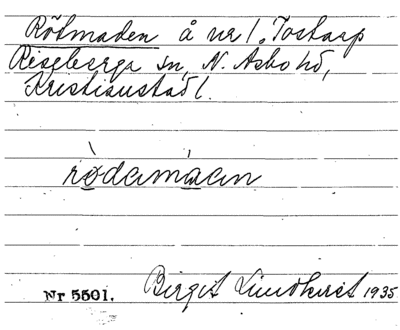 Rötmaden å nr 1. Tostarp
Riseberga sn, N. Åsbo hd,
Kristianstad l.
rödamáan
Nr 5501. Birgit Lindkvist 1935